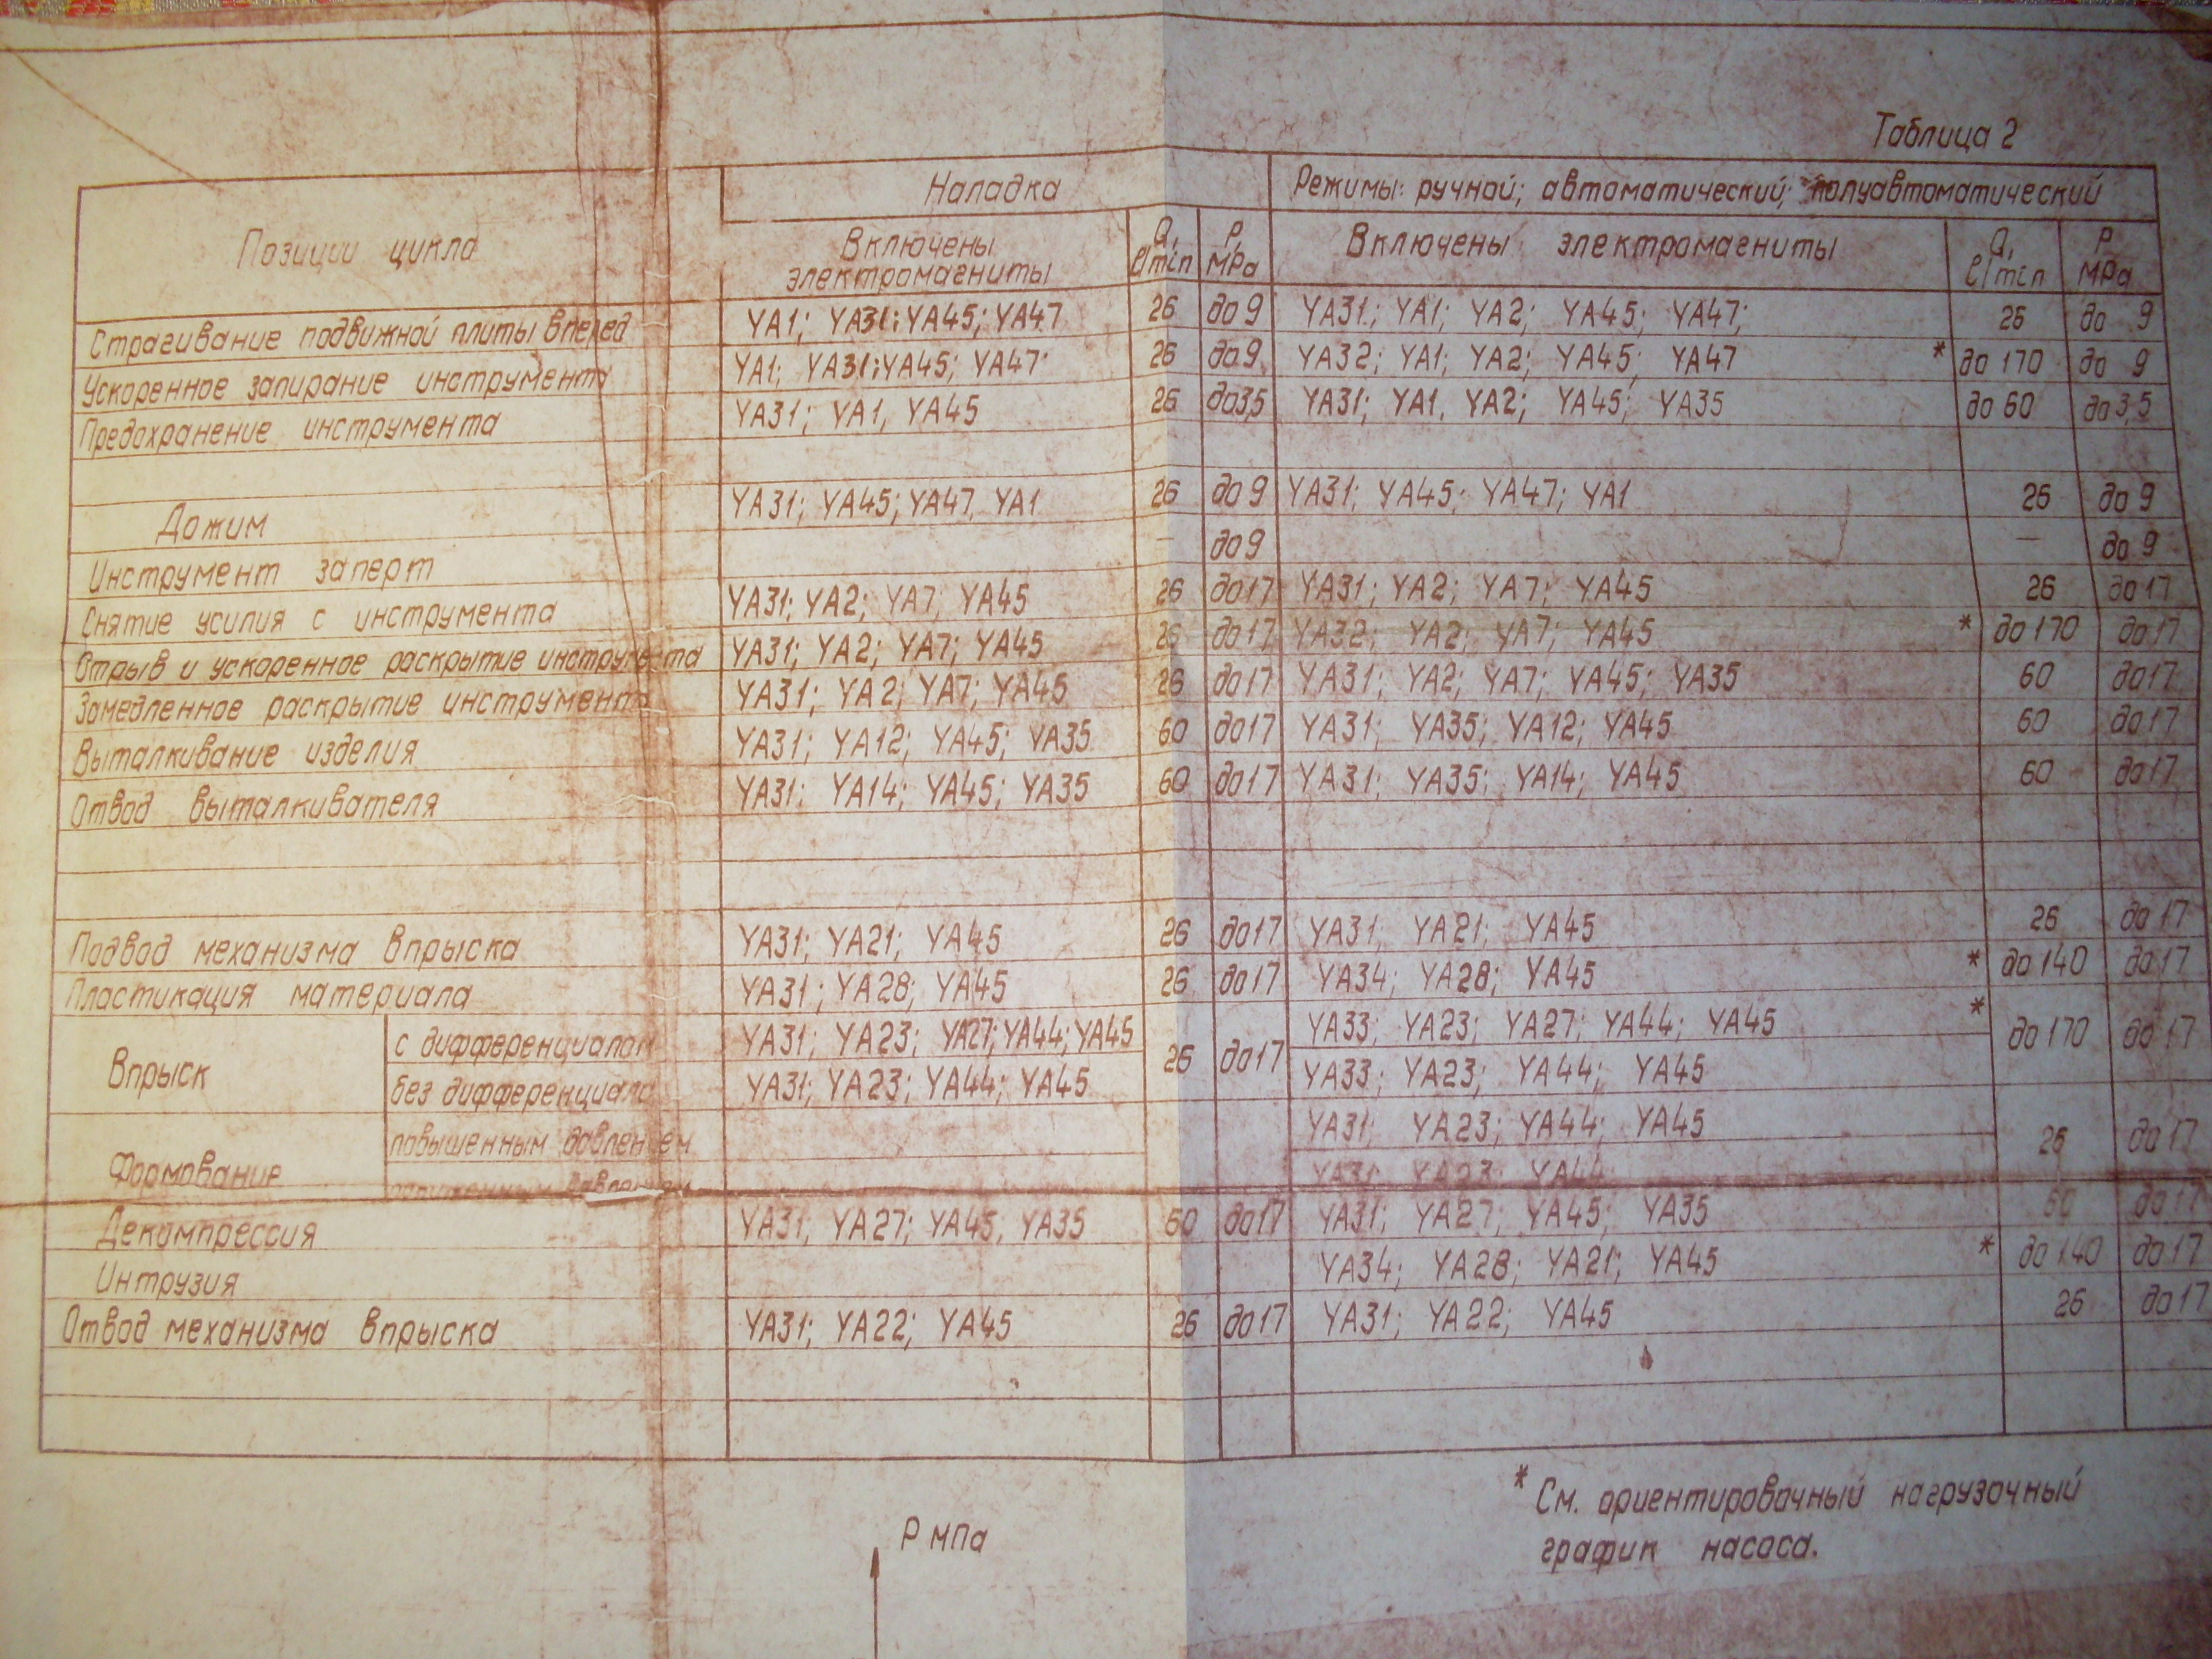 Таблица 2
Позиции цикла
Наладка
Режимы: ручной; автоматический; полуавтоматический
Включены электромагниты
Q, l/min
P, MPa
Включены электромагниты
Q, l/min
P MPa
Страгивание подвижной плиты вперед YA1; YA31; YA45; YA47 26 до 9 YA31; YA1; YA2; YA45; YA47; 26 до 9
Ускоренное запирание инструмента YA1; YA31; YA45; YA47 26 до 9 YA32; YA1; YA2; YA45; YA47 * до 170 до 9
Предохранение инструмента YA31; YA1, YA45 26 до 3,5 YA31; YA1, YA2; YA45; YA35 до 60 до 3,5
Дожим YA31; YA45; YA47, YA1 26 до 9 YA31; YA45; YA47; YA1 26 до 9
Инструмент заперт — до 9 — до 9
Снятие усилия с инструмента YA31; YA2; YA7; YA45 26 до 17 YA31; YA2; YA7; YA45 26 до 17
Отрыв и ускоренное раскрытие инструмента YA31; YA2; YA7; YA45 26 до 17 YA32; YA2; YA7; YA45 * до 170 до 17
Замедленное раскрытие инструмента YA31; YA2; YA7; YA45 26 до 17 YA31; YA2; YA7; YA45; YA35 60 до 17
Выталкивание изделия YA31; YA12; YA45; YA35 60 до 17 YA31; YA35; YA12; YA45 60 до 17
Отвод выталкивателя YA31; YA14; YA45; YA35 60 до 17 YA31; YA35; YA14; YA45 60 до 17
Подвод механизма впрыска YA31; YA21; YA45 26 до 17 YA31; YA21; YA45 26 до 17
Пластикация материала YA31; YA28; YA45 26 до 17 YA34; YA28; YA45 * до 140 до 17
Впрыск
с дифференциалом YA31; YA23; YA27; YA44; YA45 26 до 17 YA33; YA23; YA27; YA44; YA45 * до 170 до 17
без дифференциала YA31; YA23; YA44; YA45 YA33; YA23; YA44; YA45
Формование
повышенным давлением YA31; YA23; YA44; YA45 26 до 17
давлением YA31; YA23; YA44
Декомпрессия YA31; YA27; YA45; YA35 60 до 17 YA31; YA27; YA45; YA35 60 до 17
Интрузия YA34; YA28; YA21; YA45 * до 140 до 17
Отвод механизма впрыска YA31; YA22; YA45 26 до 17 YA31; YA22; YA45 26 до 17
* См. ориентировочный нагрузочный
график насоса.
P МПа